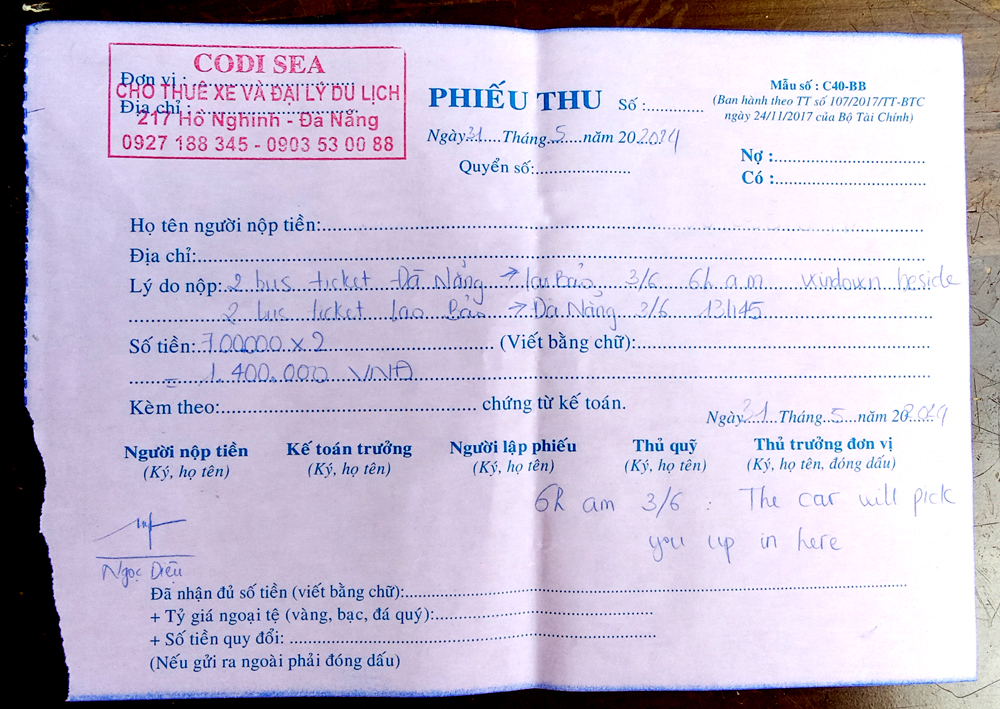 CODI SEA
Đơn vị :
CHO THUÊ XE VÀ ĐẠI LÝ DU LỊCH
Địa chỉ :
217 Hồ Nghinh - Đà Nẵng
0927 188 345 - 0903 53 00 88
PHIẾU THU Số :
Ngày 31 Tháng 5 năm 20 2024
Quyển số:
Mẫu số : C40-BB
(Ban hành theo TT số 107/2017/TT-BTC
ngày 24/11/2017 của Bộ Tài Chính)
Nợ :
Có :
Họ tên người nộp tiền:
Địa chỉ:
Lý do nộp: 2 bus ticket Đà Nẵng → Lao Bảo, 3/6 6h am windown beside
2 bus ticket Lao Bảo → Đà Nẵng 3/6 13h45
Số tiền: 700000 x 2 (Viết bằng chữ):
= 1.400.000 VNĐ
Kèm theo: chứng từ kế toán.
Ngày 31 Tháng 5 năm 20 2024
Người nộp tiền Kế toán trưởng Người lập phiếu Thủ quỹ Thủ trưởng đơn vị
(Ký, họ tên) (Ký, họ tên) (Ký, họ tên) (Ký, họ tên) (Ký, họ tên, đóng dấu)
6h am 3/6 : The car will pick
you up in here
Ngọc Diệu
Đã nhận đủ số tiền (viết bằng chữ):
+ Tỷ giá ngoại tệ (vàng, bạc, đá quý):
+ Số tiền quy đổi:
(Nếu gửi ra ngoài phải đóng dấu)